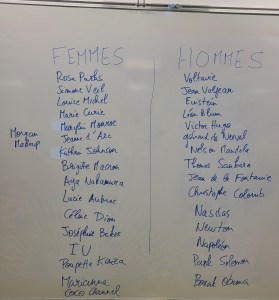 FEMMES
Rosa Parks
Simone Veil
Louise Michel
Marie Curie
Marylin Monroe
Jeanne d'Arc
Morgan Makeup
Johnson
Brigitte Macron
Aya Nakamura
Lucie Aubrac
Céline Dion
Joséphine Baker
IU
Poupette Kenza
Marianna
Coco Channel
HOMMES
Voltaire
Jean Valjean
Einstein
Léon Blum
Victor Hugo
Gérard de Nerval
Nelson Mandela
Thomas Sankara
Jean de la Fontaine
Christophe Colomb
Nasdas
Newton
Napoléon
Solomon
Barack Obama